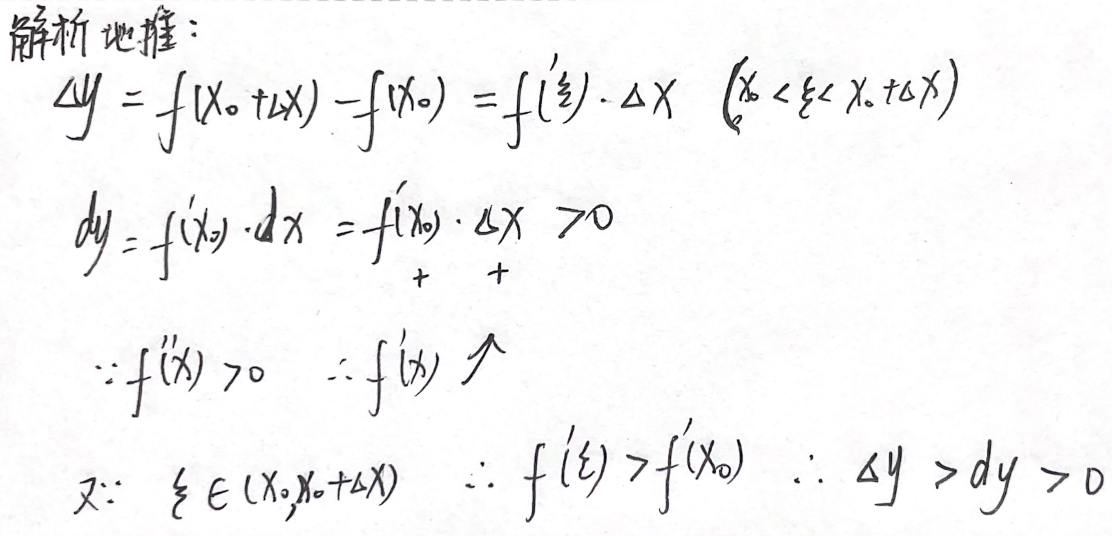 解析地推：
Δy = f(x₀+Δx) - f(x₀) = f'(ξ)·Δx (x₀<ξ<x₀+Δx)
dy = f'(x₀)·dx = f'(x₀)·Δx >0
+ +
∵ f''(x) >0 ∴ f'(x) ↗
又∵ ξ∈(x₀,x₀+Δx) ∴ f'(ξ) > f'(x₀) ∴ Δy > dy > 0